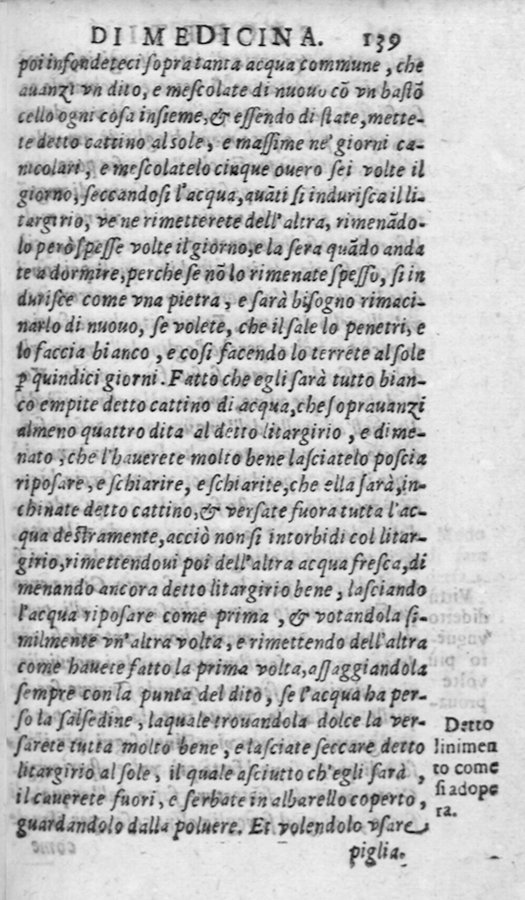 DI MEDICINA. 139
poi infondeteci sopra tanta acqua commune, che
auanzi vn dito, e mescolate di nuouo cõ vn bastõ
cello ogni cosa insieme, & essendo di state, mette-
te detto cattino al sole, e massime ne' giorni ca-
nicolari, e mescolatelo cinque ouero sei volte il
giorno, seccandosi l'acqua, quãti si indurisca il li-
targirio, ve ne rimetterete dell'altra, rimenãdo-
lo però spesse volte il giorno, e la sera quãdo anda
te a dormire, perche se nõ lo rimenate spesso, si in
durisce come vna pietra, e sarà bisogno rimaci-
narlo di nuouo, se volete, che il sale lo penetri, e
lo faccia bianco, e cosi facendo lo terrete al sole
ꝑ quindici giorni. Fatto che egli sarà tutto bian-
co empite detto cattino di acqua, che soprauanzi
almeno quattro dita al detto litargirio, e dime-
nato, che l'hauerete molto bene lasciatelo poscia
riposare, e schiarire, e schiarite, che ella sarà, in-
chinate detto cattino, & versate fuora tutta l'ac-
qua destramente, acciò non si intorbidi col litar-
girio, rimettendoui poi dell'altra acqua fresca, di
menando ancora detto litargirio bene, lasciando
l'acqua riposare come prima, & votandola si-
milmente vn'altra volta, e rimettendo dell'altra
come hauete fatto la prima volta, assaggiandola
sempre con la punta del dito, se l'acqua ha per-
so la salsedine, laquale trouandola dolce la ver-
sarete tutta molto bene, e lasciate seccare detto
litargirio al sole, il quale asciutto ch'egli sarà,
il cauerete fuori, e serbate in albarello coperto,
guardandolo dalla poluere. Et volendolo vsare
piglia.
Detto
linimen
to come
si adope
ra.